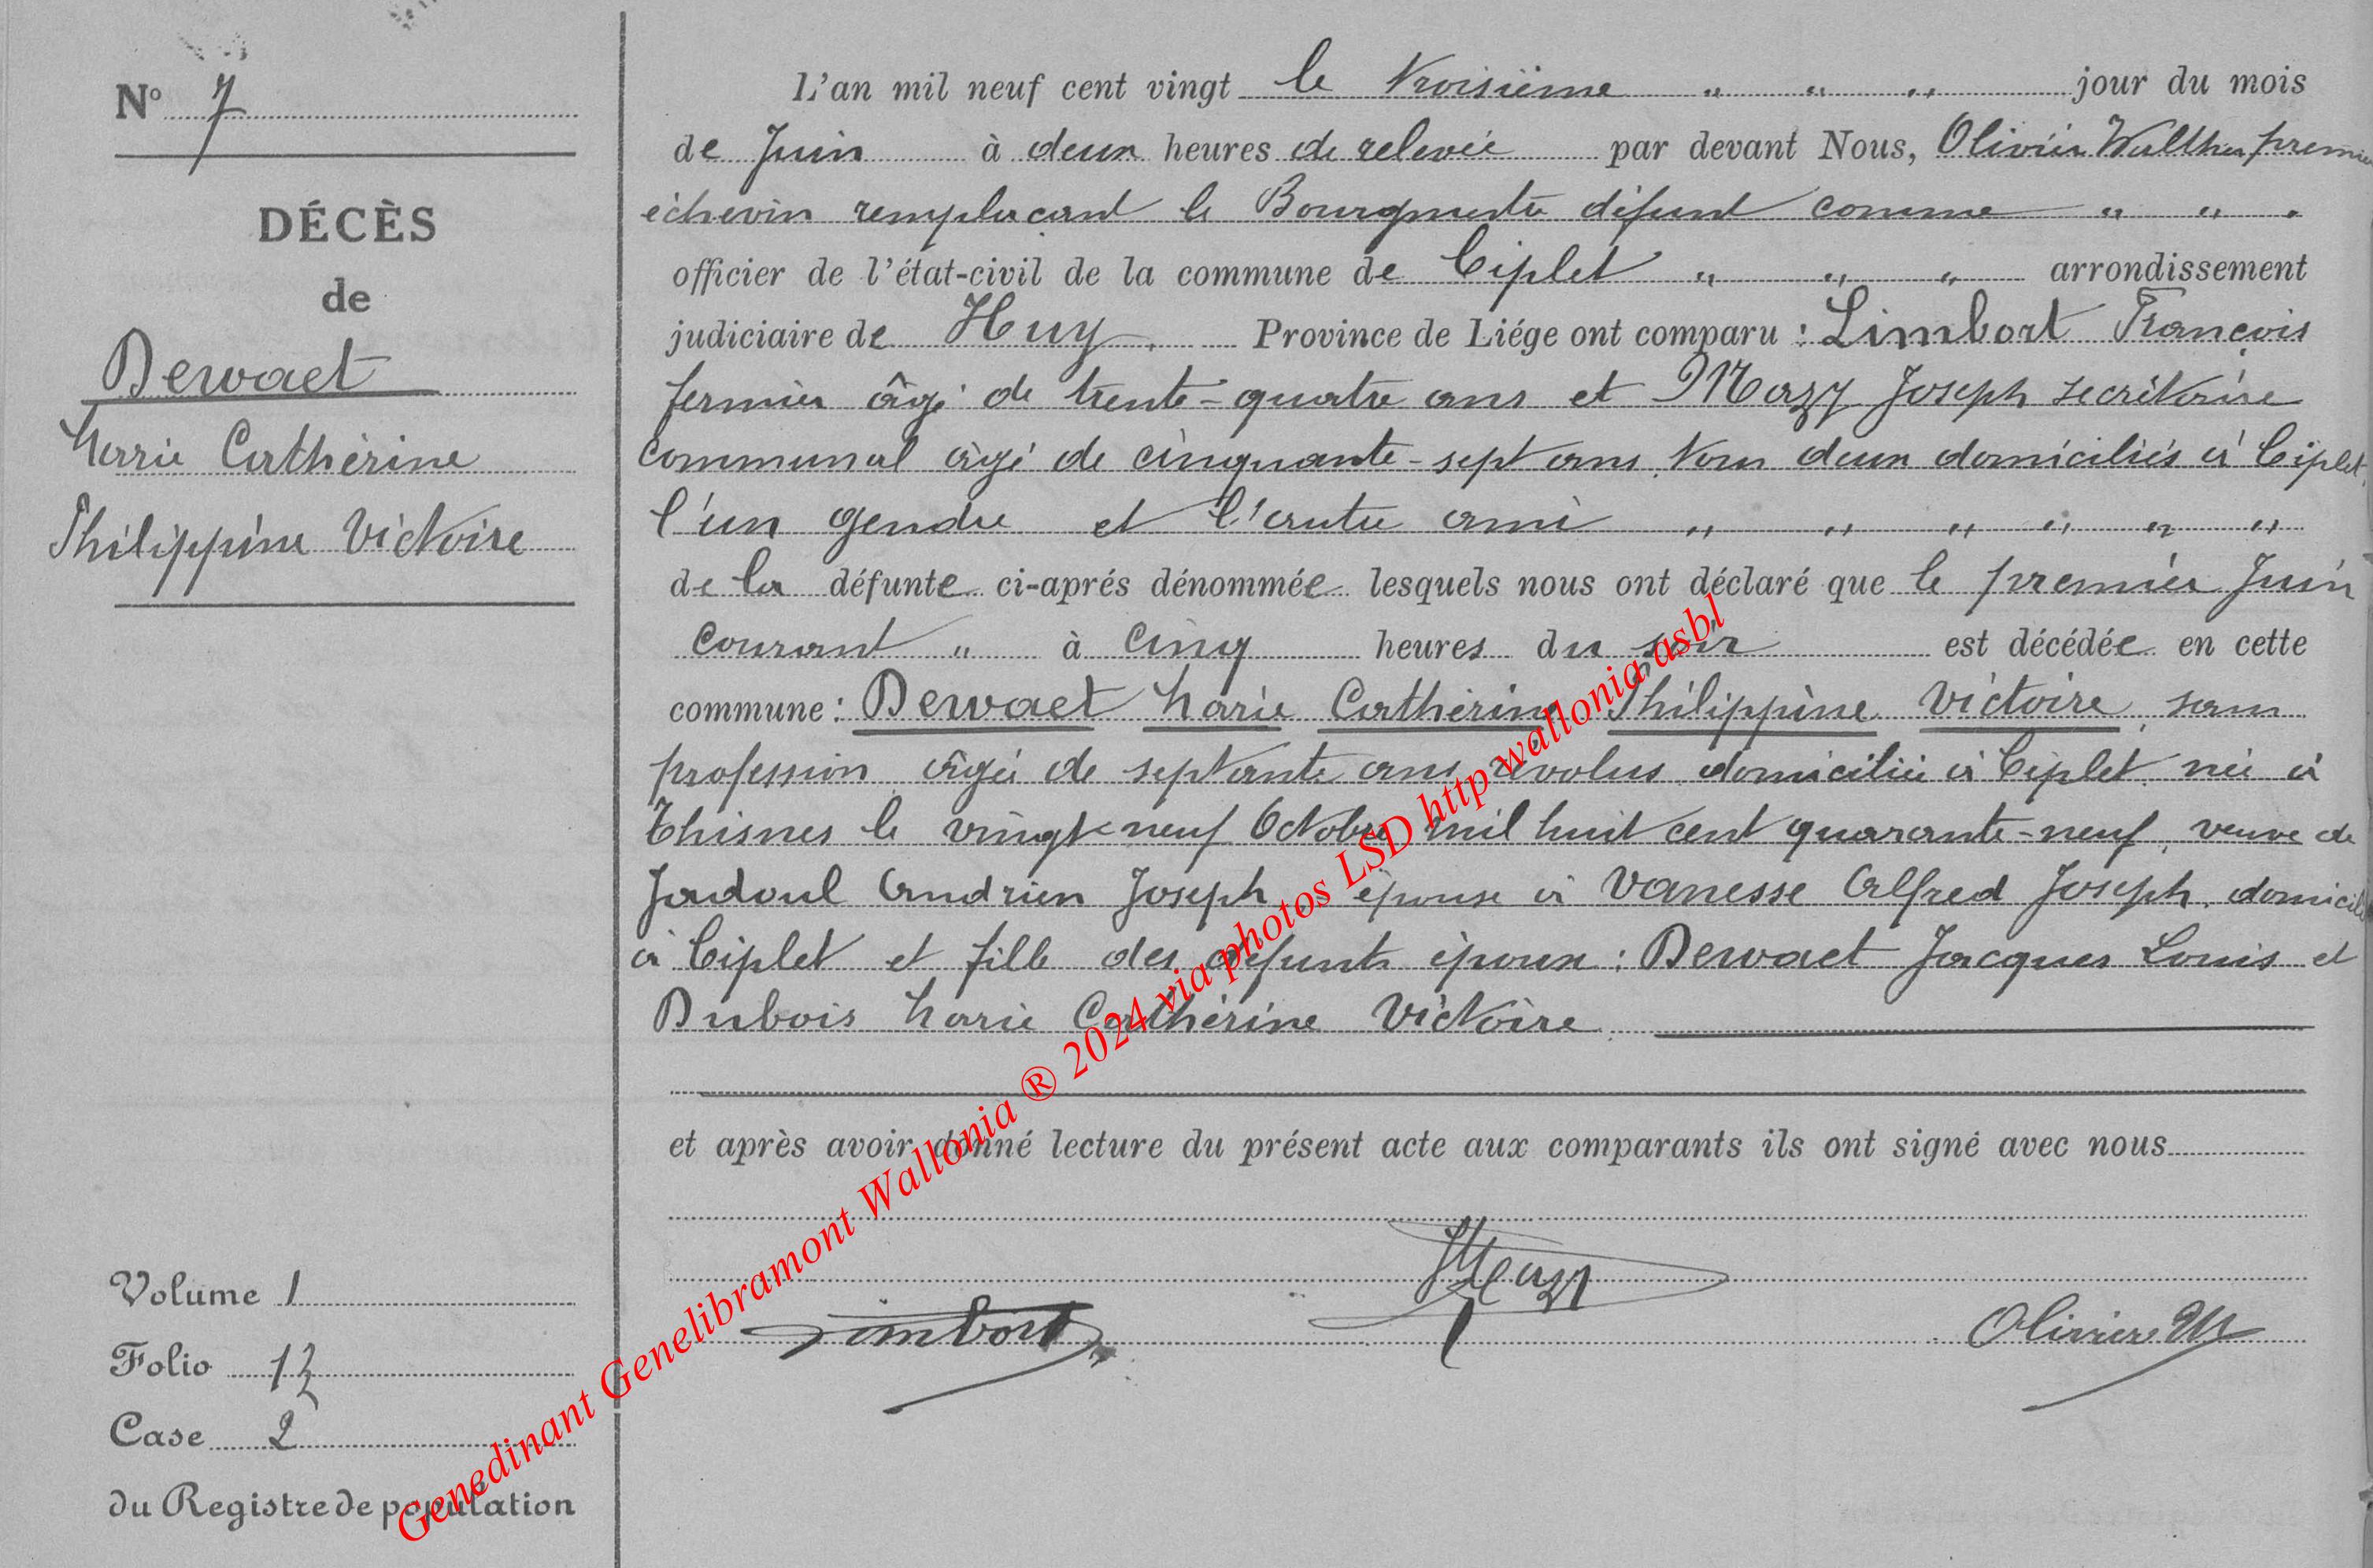 N° 7
DÉCÈS
de
Dewaet
Marie Catherine
Philippine Victoire
Volume 1
Folio 12
Case 2
du Registre de population
L'an mil neuf cent vingt le troisième " " " jour du mois
de Juin à deux heures de relevée par devant Nous, Olivier Walther premier
échevin remplaçant le Bourgmestre défunt comme " " "
officier de l'état-civil de la commune de Ciplet " " " arrondissement
judiciaire de Huy. Province de Liége ont comparu : Limbort François
fermier âgé de trente-quatre ans et Mazy Joseph secrétaire
communal âgé de cinquante-sept ans, tous deux domiciliés à Ciplet,
l'un gendre et l'autre ami " " " " " "
de la défunte ci-aprés dénommée lesquels nous ont déclaré que le premier Juin
courant " à cinq heures du soir est décédée en cette
commune : Dewaet Marie Catherine Philippine Victoire, sans
profession âgée de septante ans révolus domiciliée à Ciplet née à
Thisnes le vingt-neuf Octobre mil huit cent quarante-neuf, veuve de
Jadoul Andrien Joseph, épouse à Vanesse Alfred Joseph, domicilié
à Ciplet et fille des défunts époux : Dewaet Jacques Louis et
Dubois Marie Catherine Victoire
et après avoir donné lecture du présent acte aux comparants ils ont signé avec nous
Limbort
Mazy
Olivier W
Genedinant Genelibramont Wallonia ® 2024 via photos LSD http wallonia asbl